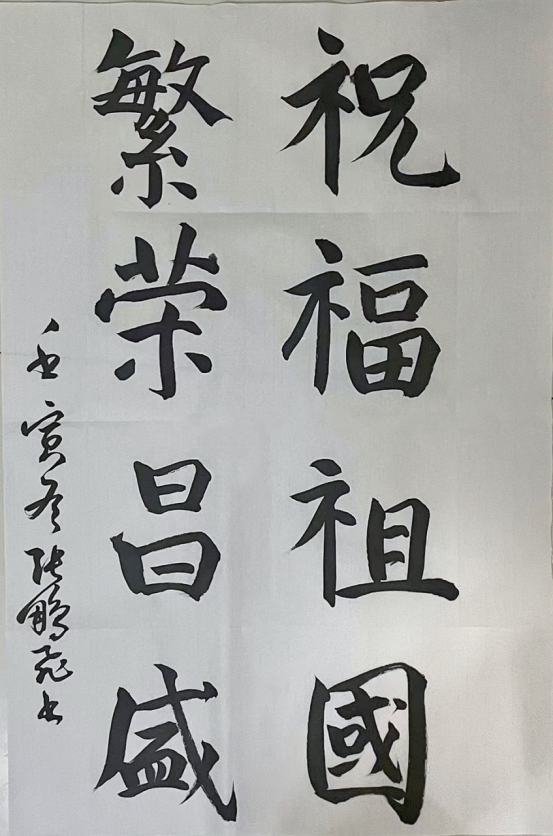 祝福祖國
繁荣昌盛
壬寅冬张鹏飞书